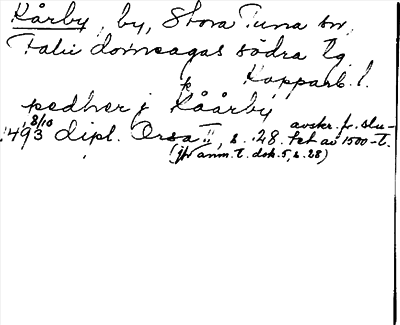 Kårby, by, Stora Tuna sn,
Falu domsagas södra tg
Kopparb. l.
pedher j Kåårby
1493 8/10 dipl. Orsa II, s. 28. avskr. fr. slu-
tet av 1500-t.
(jfr anm. t. dok. 5, s. 28)